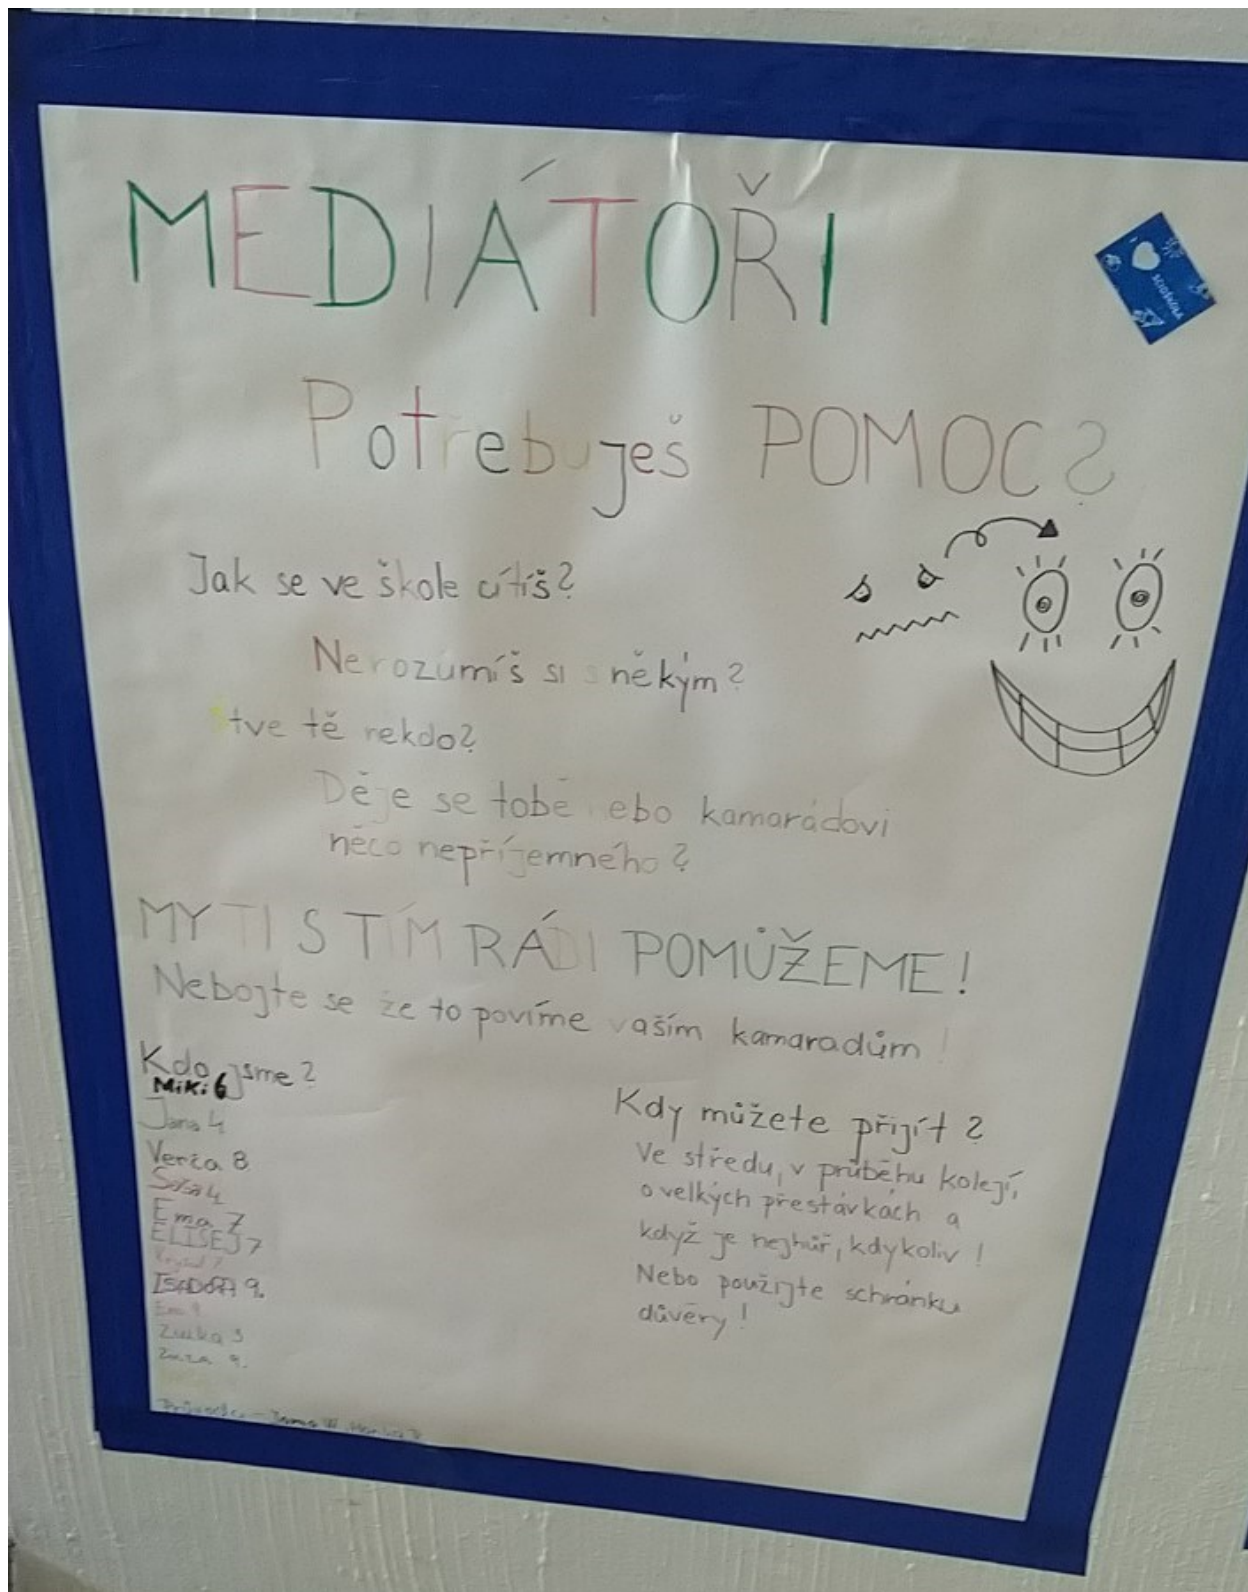 MEDIÁTOŘI
SCIOŠKOLA
Potřebuješ POMOC?
Jak se ve škole cítíš?
Nerozumíš si s někým?
štve tě někdo?
Děje se tobě nebo kamarádovi
něco nepříjemného?
MY TI S TÍM RÁDI POMŮŽEME!
Nebojte se že to povíme vaším kamaradům!
Kdo jsme?
MiKi 6
Jana 4
Verča 8
Ema 7
ELISEJ 7
ISADORA 9.
Ema 9
Zuzka 3
Zuza 9.
Kdy můžete přijít?
Ve středu, v průběhu kolejí,
o velkých přestávkách a
když je nejhůř, kdykoliv!
Nebo použijte schránku
důvěry!